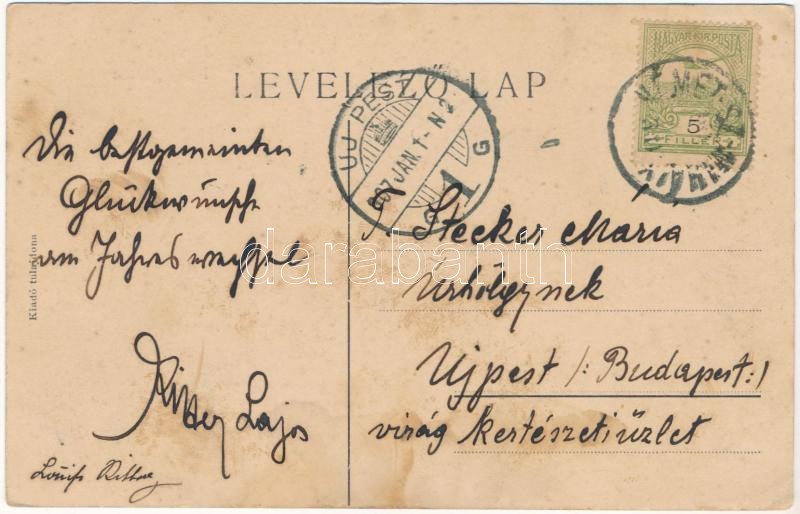 LEVELEZŐ LAP
MAGYAR KIR. POSTA
5
FILLÉR
UJ-PEST
907 JAN. 1 - N 2
G 1 G
Die bestgemeinten
Glückwünsche
am Jahreswechsel
Ritter Lajos
Kiadó tulajdona
T. Stecker Mária
Urhölgynek
Ujpest /: Budapest :/
virág kertészeti üzlet
darabanth